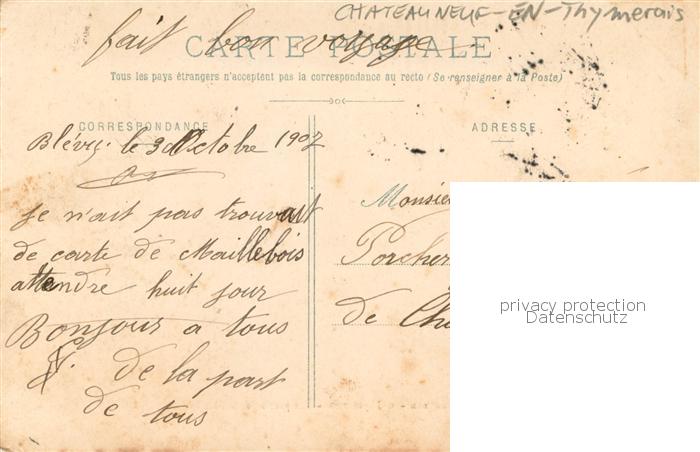 CHATEAUNEUF-EN-Thymerais
fait bon voyage
CARTE POSTALE
Tous les pays étrangers n'acceptent pas la correspondance au recto (Se renseigner à la Poste)
CORRESPONDANCE
Blévy le 3 Octobre 1907
je n'ait pas trouvait
de carte de Maillebois
attendre huit jour
Bonjour a tous
de la part
de tous
ADRESSE
Monsie
Porcher
de Ch
privacy protection
Datenschutz